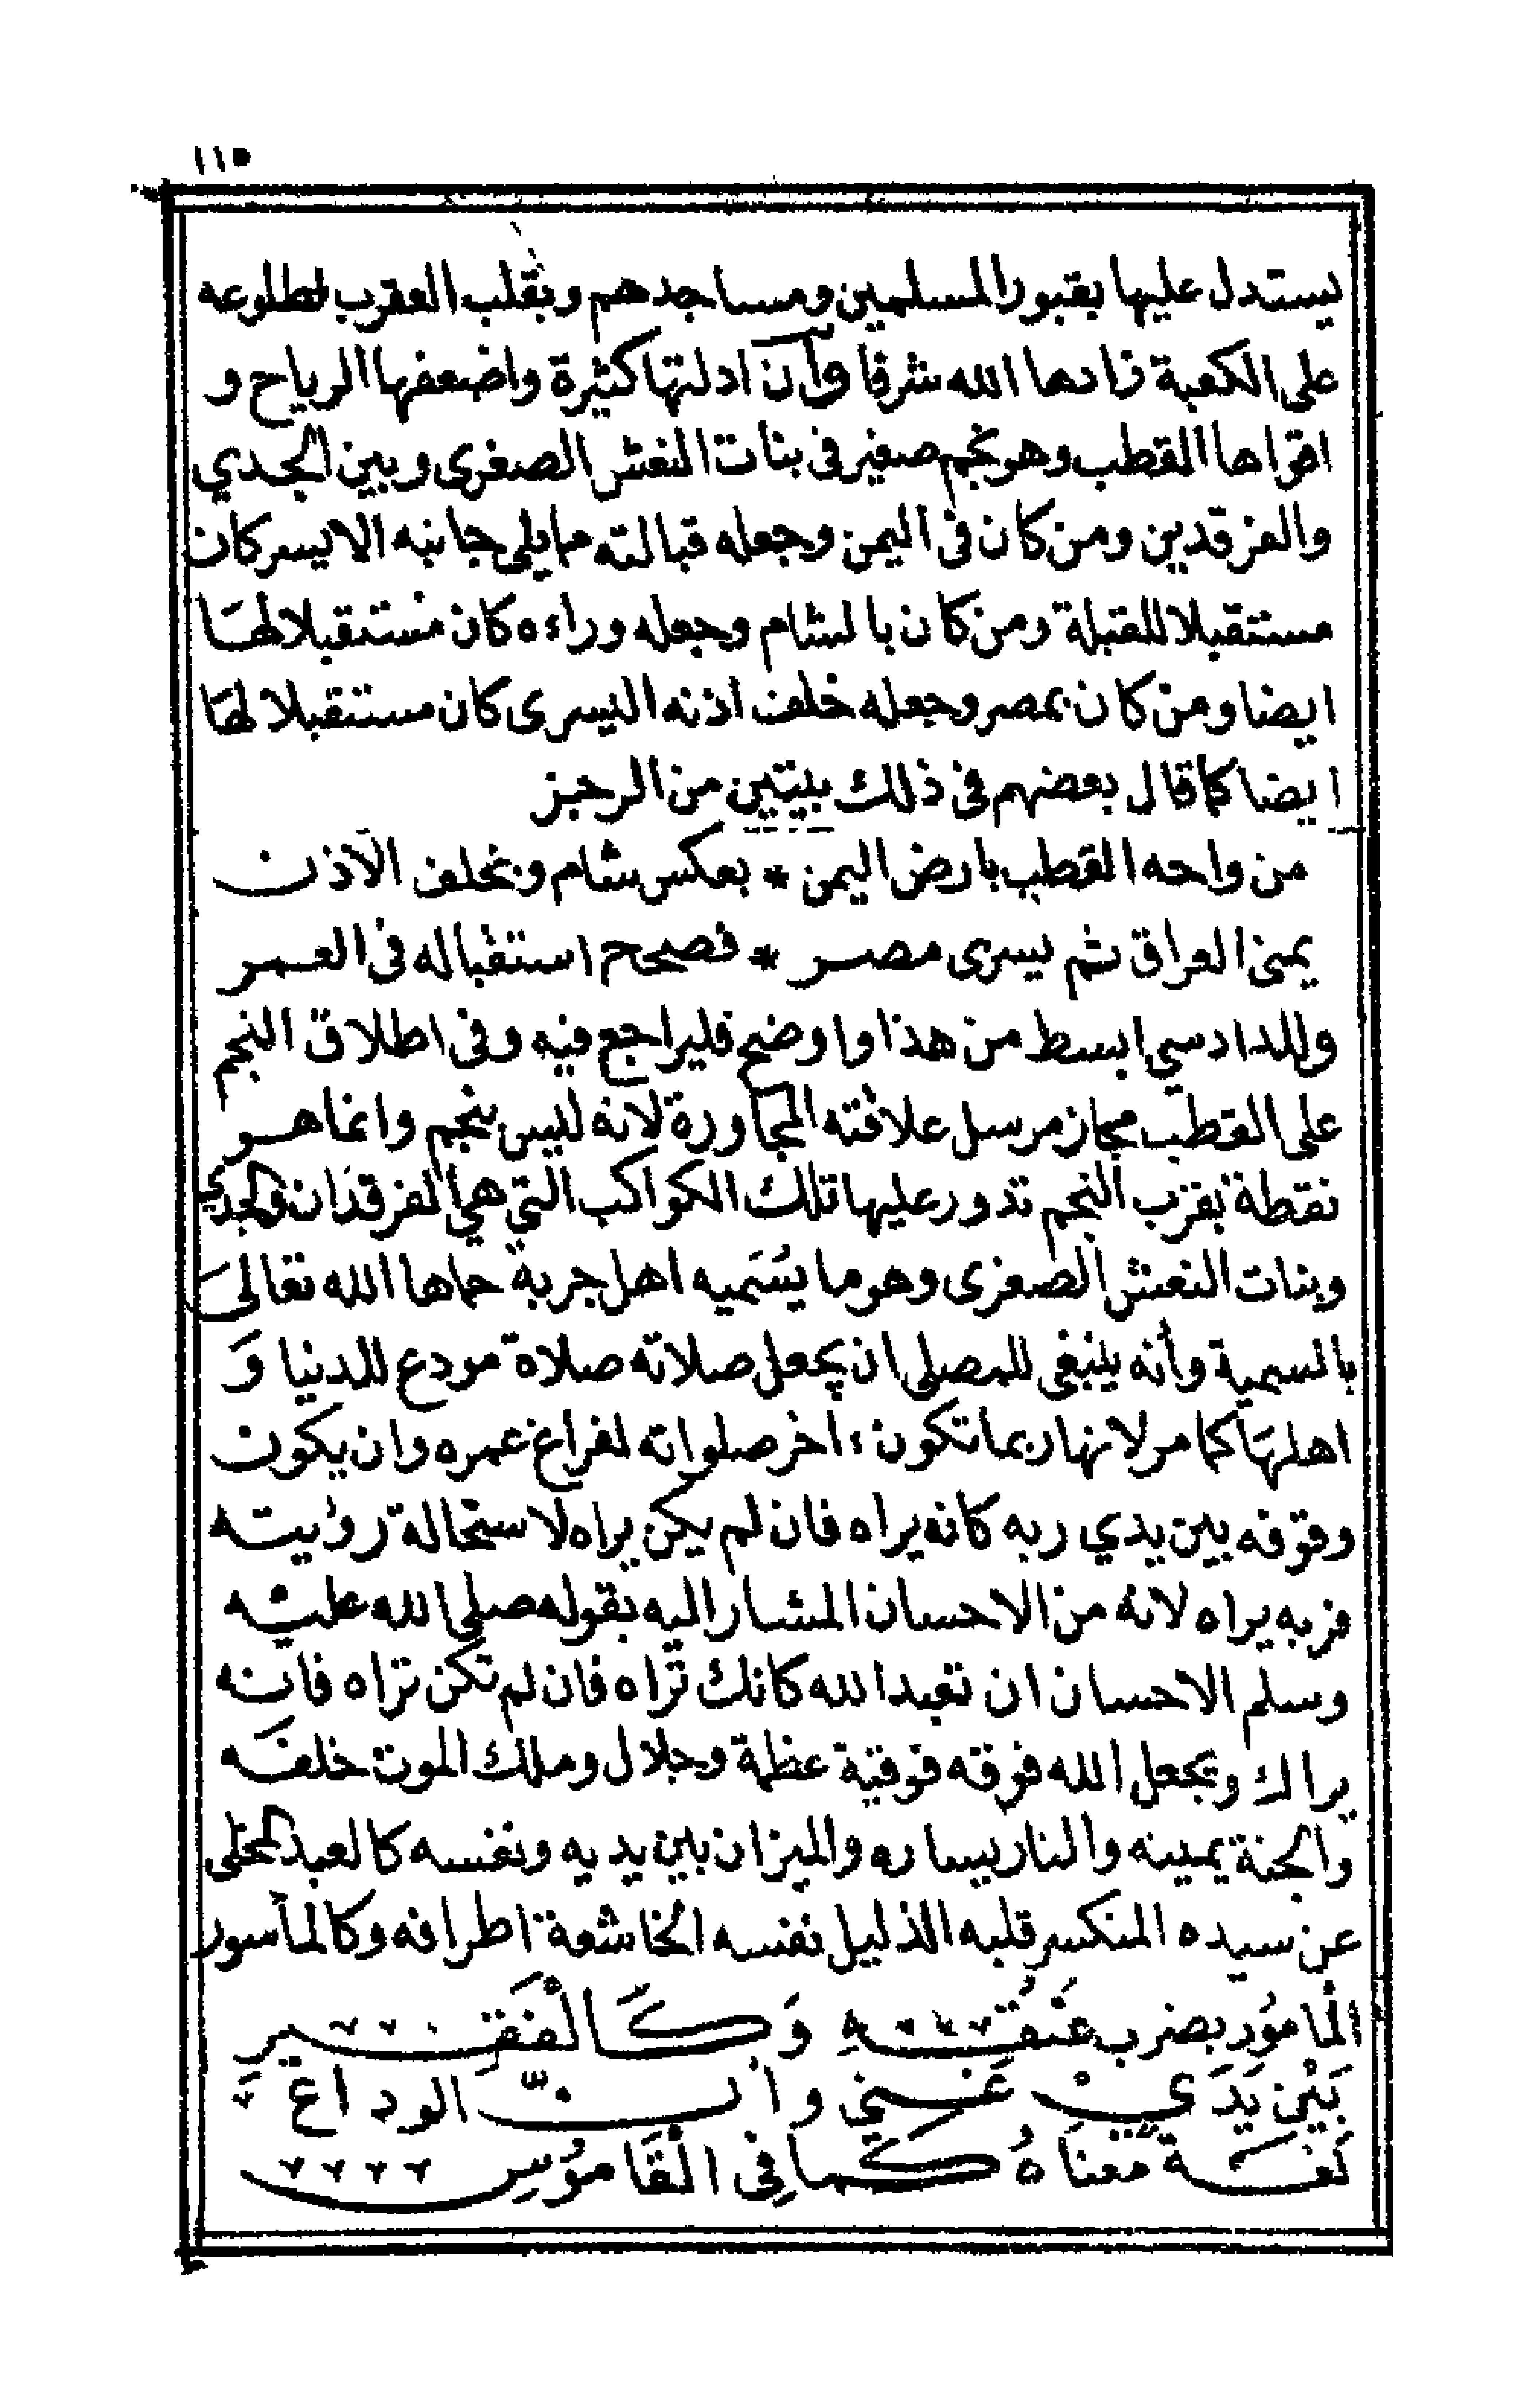 ١١٥
يستدل عليها بقبور المسلمين ومساجدهم وبقلب العقرب لطلوعه
على الكعبة زادها الله شرفا وأن ادلتها كثيرة واضعفها الرياح و
اقواها القطب وهو نجم صغير فى بنات النعش الصغرى وبين الجدي
والفرقدين ومن كان فى اليمن وجعله قبالته مما يلى جانبه الايسر كان
مستقبلا للقبلة ومن كان بالشام وجعله وراءه كان مستقبلا لهَا
ايضا ومن كان بمصر وجعله خلف اذنه اليسرى كان مستقبلا لهَا
ايضا كما قال بعضهم فى ذلك بيتين من الرجز
من واجه القطب بارض اليمن * بعكس شام وبخلف الاذن
يمنى العراق ثم يسرى مصر * فصحح استقباله فى العمر
وللدادسي ابسط من هذا واوضح فليراجع فيه وفى اطلاق النجم
على القطب مجاز مرسل علاقته المجاورة لانه ليس بنجم وانما هو
نقطة بقرب النجم تدور عليها تلك الكواكب التي هي الفرقدان والجدي
وبنات النعش الصغرى وهو ما يسَميه اهل جربة حماها الله تعالىَ
بالسمية وأنه ينبغى للمصلى ان يجعل صلاته صلاة مودع للدنيا وَ
اهلهَا كما مر لانها ربما تكون ءاخر صلواته لفراغ عمره وان يكون
وقوفه بين يدي ربه كانه يراه فان لم يكن يراه لاستحالة رؤيته
فربه يراه لانه من الاحسان المشار اليه بقوله صلى الله عليه
وسلم الاحسان ان تعبد الله كانك تراه فان لم تكن تراه فانه
يراك ويجعل الله فوقه فوقية عظمة وجلال وملك الموت خلفَه
والجنة يمينه والنار يساره والميزان بين يديه ونفسه كالعبد المحلى
عن سيده المنكسر قلبه الذليل نفسه الخاشعة اطرافه وكالمأسور
المامُور بضرب عُنُقِهِ وَكَالْفَقِيرِ
بَيْن يَدَيْ غَني وانّ الوداع
كغمة معنَاهُ كما فِى الْقَامُوسِ